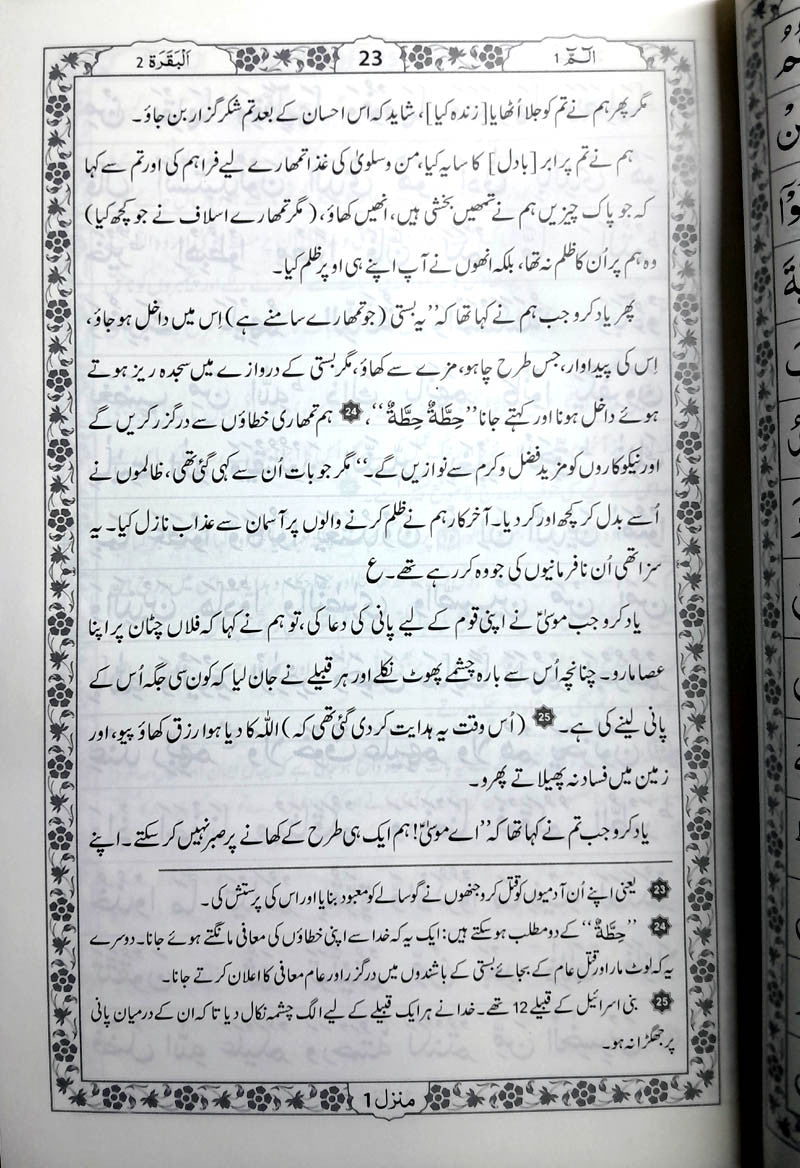 الٓمّٓ 1
23
اَلْبَقَرَة 2
مگر پھر ہم نے تم کو جِلا اُٹھایا [زندہ کیا]، شاید کہ اس احسان کے بعد تم شکر گزار بن جاؤ۔
ہم نے تم پر ابر [بادل] کا سایہ کیا، من وسلویٰ کی غذا تمھارے لیے فراہم کی اور تم سے کہا
کہ جو پاک چیزیں ہم نے تمھیں بخشی ہیں، انھیں کھاؤ، (مگر تمھارے اسلاف نے جو کچھ کیا)
وہ ہم پر اُن کا ظلم نہ تھا، بلکہ انھوں نے آپ اپنے ہی اوپر ظلم کیا۔
پھر یاد کرو جب ہم نے کہا تھا کہ ”یہ بستی (جو تمھارے سامنے ہے) اِس میں داخل ہو جاؤ،
اِس کی پیداوار، جس طرح چاہو، مزے سے کھاؤ، مگر بستی کے دروازے میں سجدہ ریز ہوتے
ہوئے داخل ہونا اور کہتے جانا ”حِطَّةٌ حِطَّةٌ“، 24 ہم تمھاری خطاؤں سے درگزر کریں گے
اور نیکوکاروں کو مزید فضل و کرم سے نوازیں گے۔“ مگر جو بات اُن سے کہی گئی تھی، ظالموں نے
اُسے بدل کر کچھ اور کر دیا۔ آخرکار ہم نے ظلم کرنے والوں پر آسمان سے عذاب نازل کیا۔ یہ
سزا تھی اُن نافرمانیوں کی جو وہ کر رہے تھے۔ ع
یاد کرو جب موسیٰؑ نے اپنی قوم کے لیے پانی کی دعا کی، تو ہم نے کہا کہ فلاں چٹان پر اپنا
عصا مارو۔ چنانچہ اُس سے بارہ چشمے پھوٹ نکلے اور ہر قبیلے نے جان لیا کہ کون سی جگہ اُس کے
پانی لینے کی ہے۔ 25 (اُس وقت یہ ہدایت کر دی گئی تھی کہ) اللہ کا دیا ہوا رزق کھاؤ پیو، اور
زمین میں فساد نہ پھیلاتے پھرو۔
یاد کرو جب تم نے کہا تھا کہ ”اے موسیٰؑ! ہم ایک ہی طرح کے کھانے پر صبر نہیں کر سکتے۔ اپنے
23 یعنی اپنے اُن آدمیوں کو قتل کرو جنھوں نے گوسالے کو معبود بنایا اور اس کی پرستش کی۔
24 ”حِطَّةٌ“ کے دو مطلب ہو سکتے ہیں: ایک یہ کہ خدا سے اپنی خطاؤں کی معافی مانگتے ہوئے جانا۔ دوسرے
یہ کہ لوٹ مار اور قتلِ عام کے بجائے بستی کے باشندوں میں درگزر اور عام معافی کا اعلان کرتے جانا۔
25 بنی اسرائیل کے قبیلے 12 تھے۔ خدا نے ہر ایک قبیلے کے لیے الگ چشمہ نکال دیا تاکہ ان کے درمیان پانی
پر جھگڑا نہ ہو۔
منزل 1